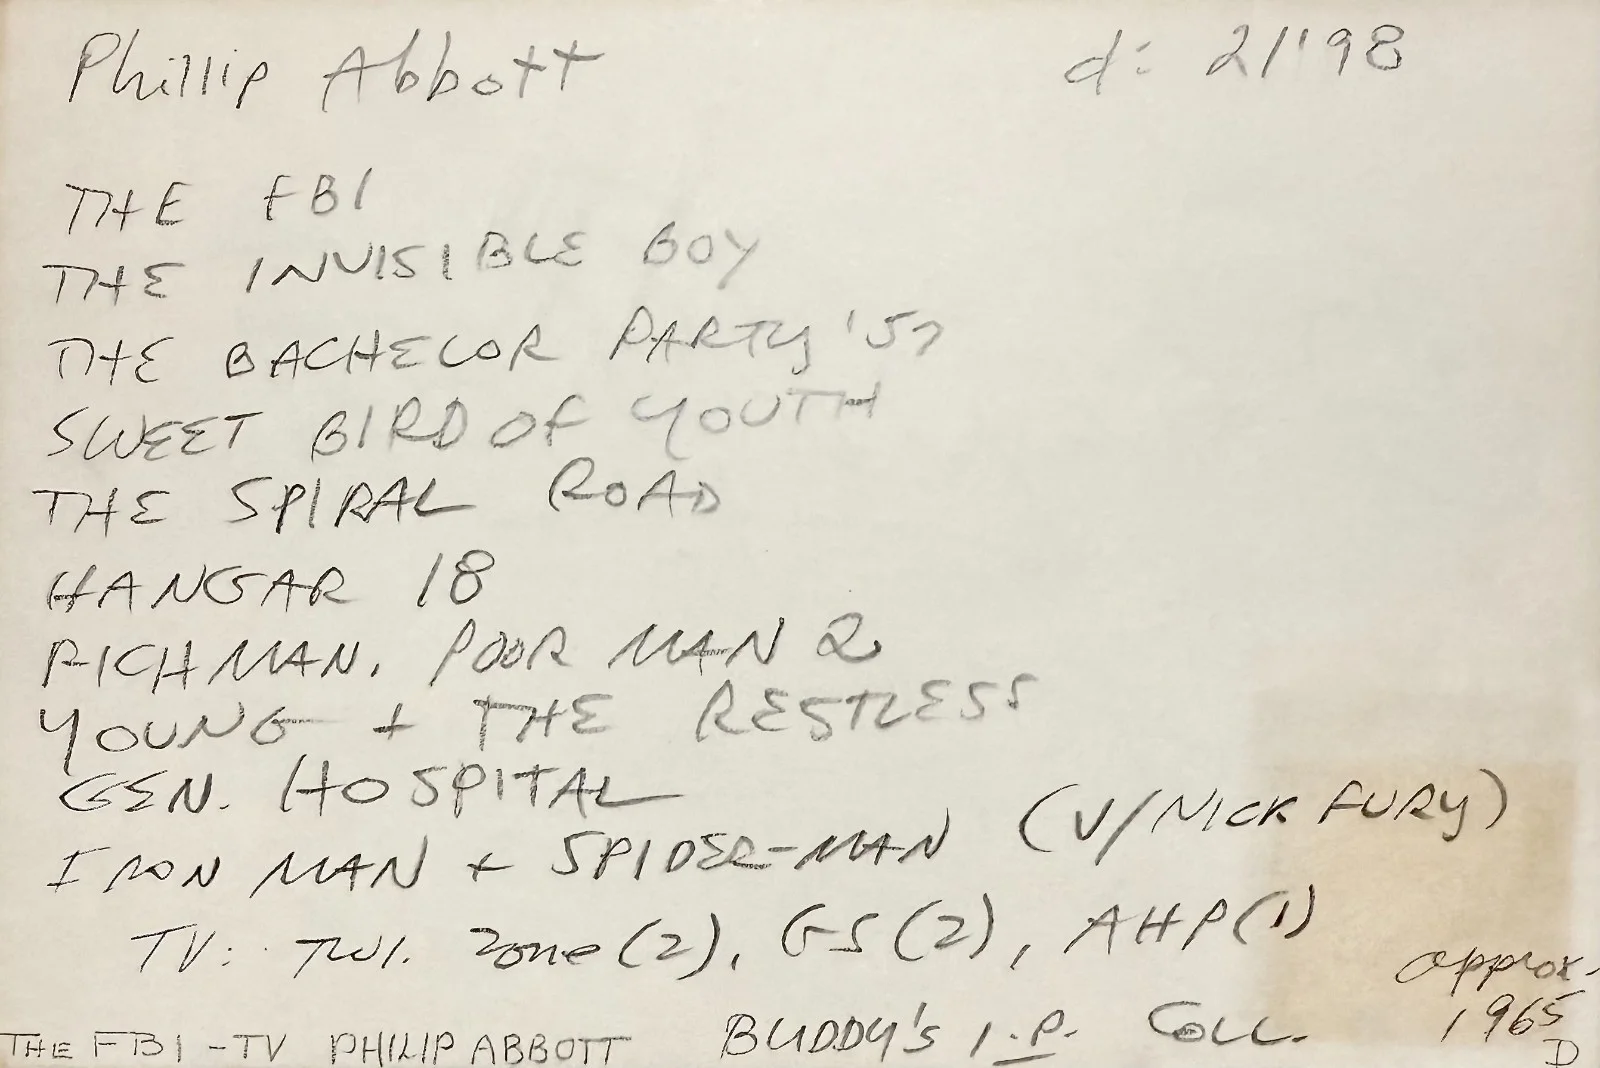 Phillip Abbott d: 2/'98
THE FBI
THE INVISIBLE BOY
THE BACHELOR PARTY '57
SWEET BIRD OF YOUTH
THE SPIRAL ROAD
HANGAR 18
RICH MAN, POOR MAN 2
YOUNG + THE RESTLESS
GEN. HOSPITAL
IRON MAN + SPIDER-MAN (V/NICK FURY)
TV: TWI. Zone (2), GS (2), AHP (1)
approx.
1965
THE FBI - TV PHILIP ABBOTT BUDDY'S I.P. COLL.
D